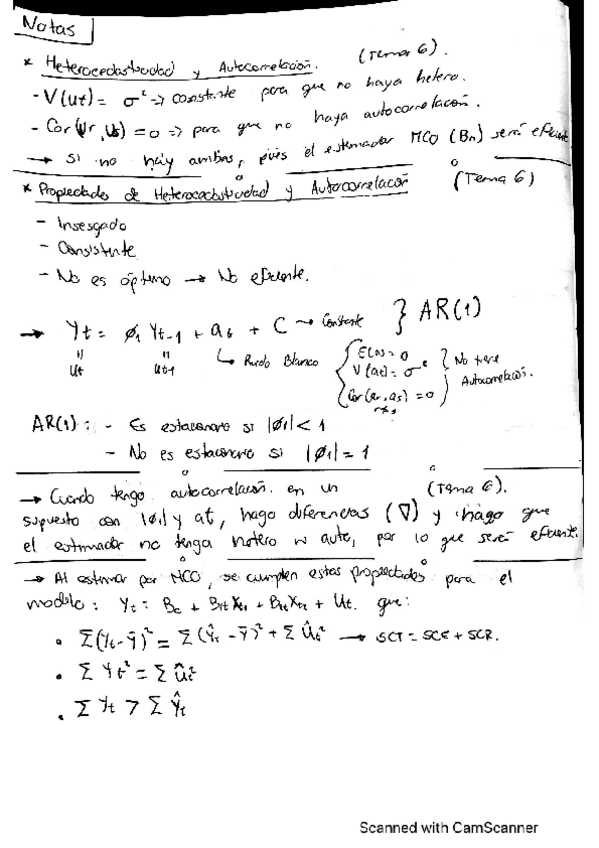 Notas
* Heterocedasticidad y Autocorrelación. (Tema 6).
- V(Ut) = σ² => constante para que no haya hetero.
- Cor(Ur, Us) = 0 => para que no haya autocorrelación.
→ Si no hay ambas, pues el estimador MCO (Bn) será eficiente
* Propiedades de Heterocedasticidad y Autocorrelación (Tema 6)
- Insesgado
- Consistente
- No es óptimo → No eficiente.
→ Yt = ø1 Yt-1 + at + C → Constante } AR(1)
Ut Ut-1 ↳ Ruido Blanco { E(at) = 0 V(at) = σ² Cor(ar, as) = 0 r≠s } No tiene Autocorrelación.
AR(1): - Es estacionario si |ø1| < 1
- No es estacionario si |ø1| = 1
→ Cuando tengo autocorrelación en un (Tema 6).
supuesto con |ø1| y at, hago diferencias (∇) y hago que
el estimador no tenga hetero ni auto, por lo que será eficiente.
→ Al estimar por MCO, se cumplen estas propiedades para el
modelo: Yt = + Ut. que:
• Σ(Yt-ȳ)² = Σ(Ŷt - ȳ)² + Σ Ût² → SCT = SCE + SCR.
• Σ Yt² = Σ Ût²
• Σ Yt > Σ Ŷt
Scanned with CamScanner